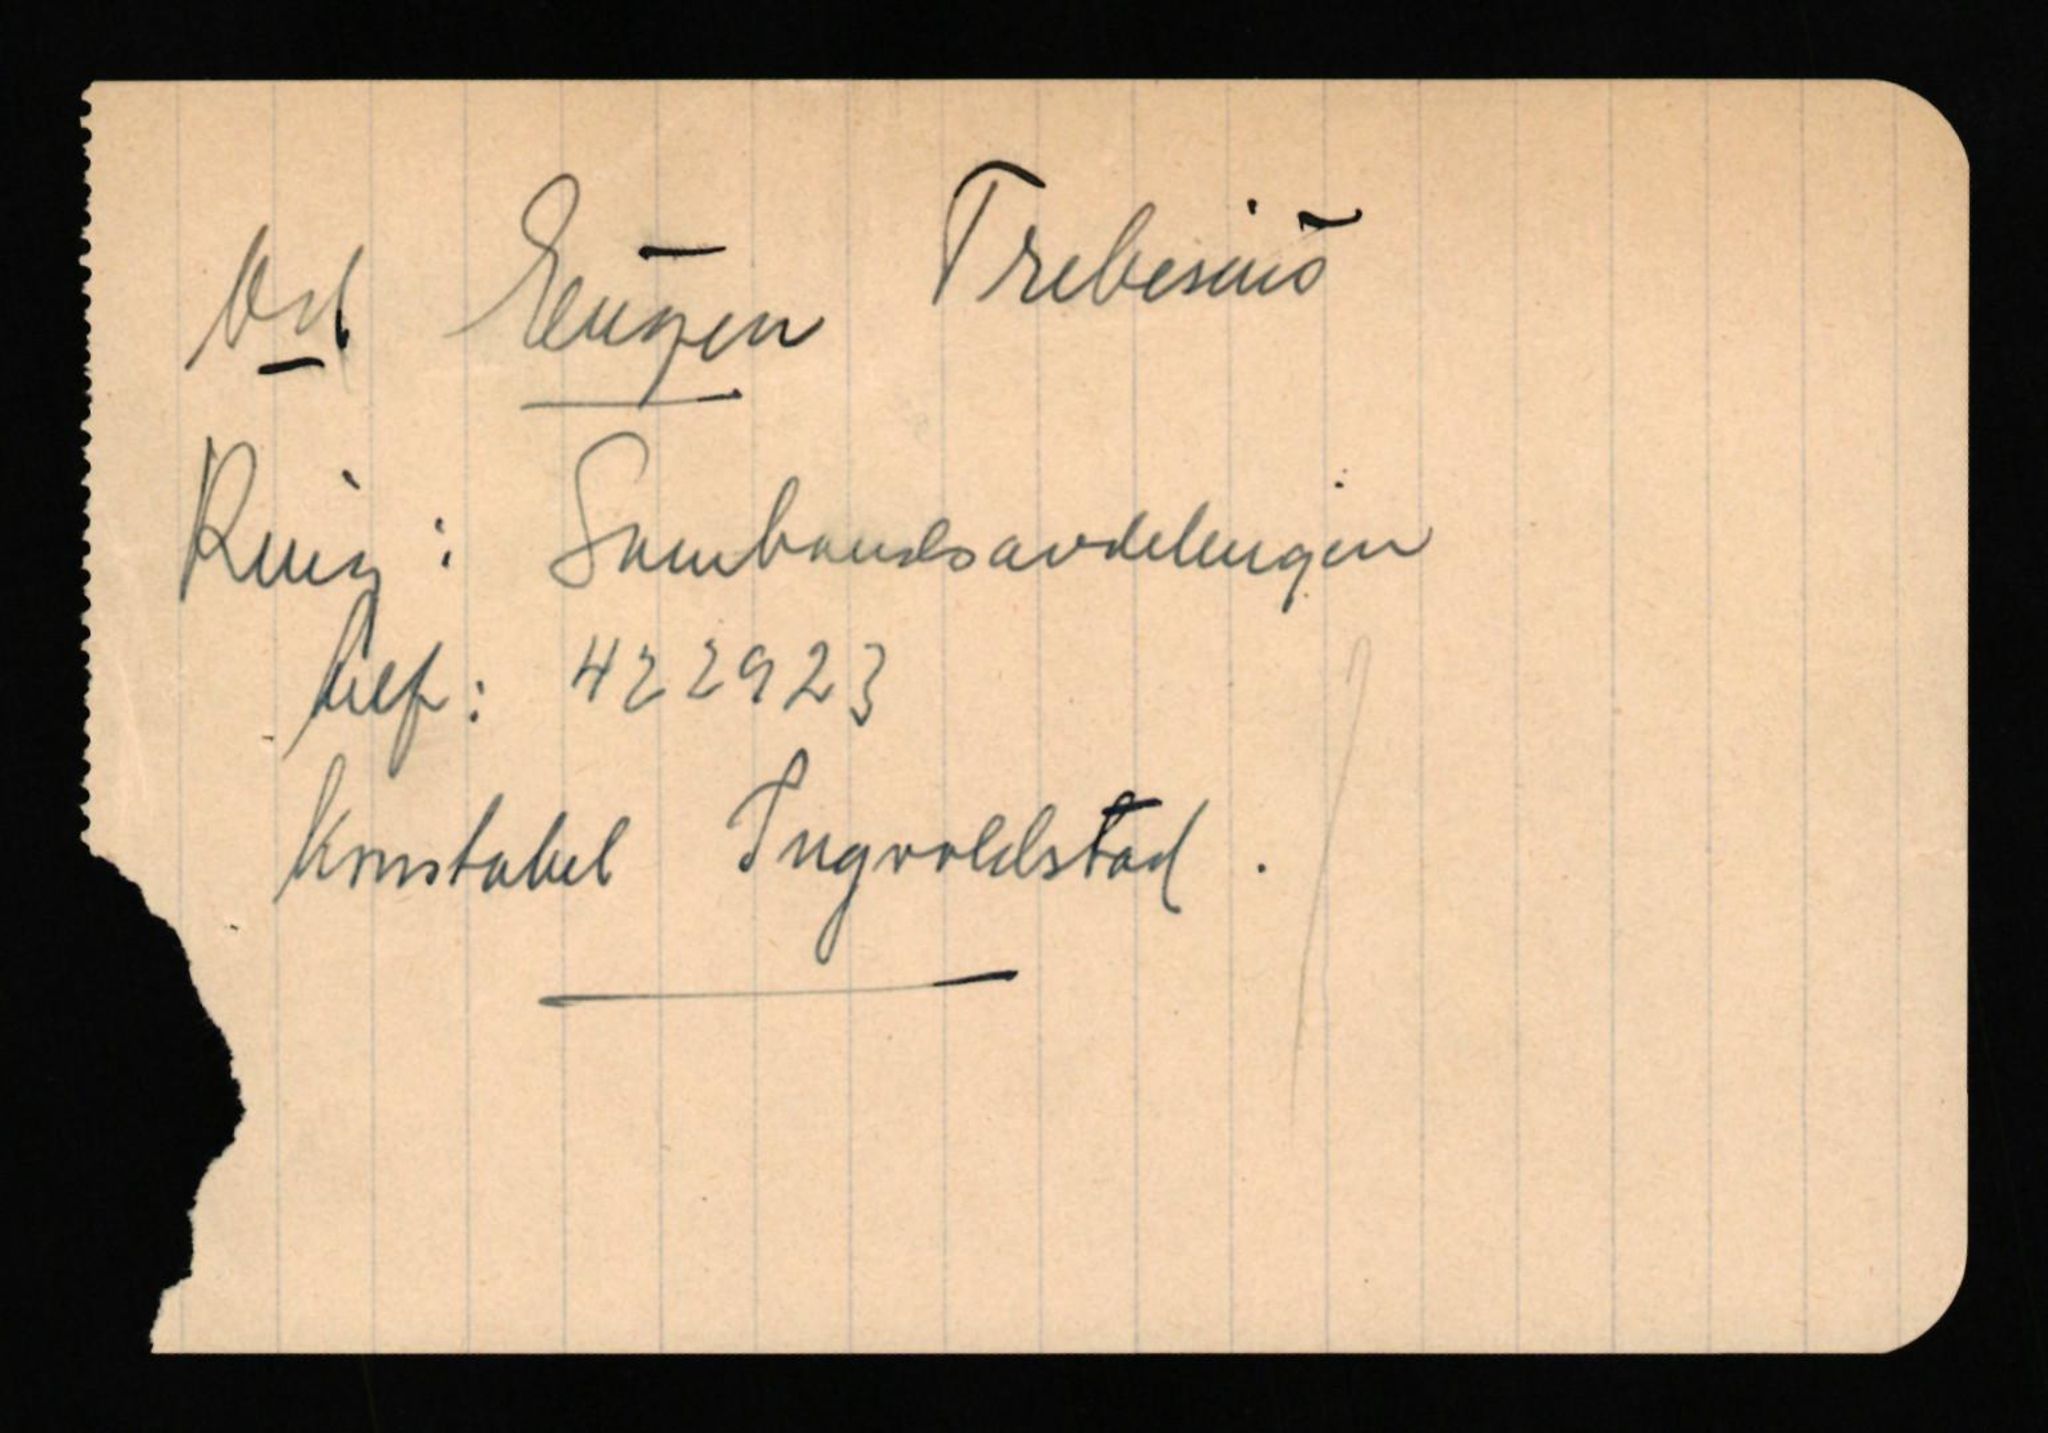 Ved Eugen Trebesius
Ring: Sambandsavdelingen
telf: 422923
Konstabel Ingvoldstad.